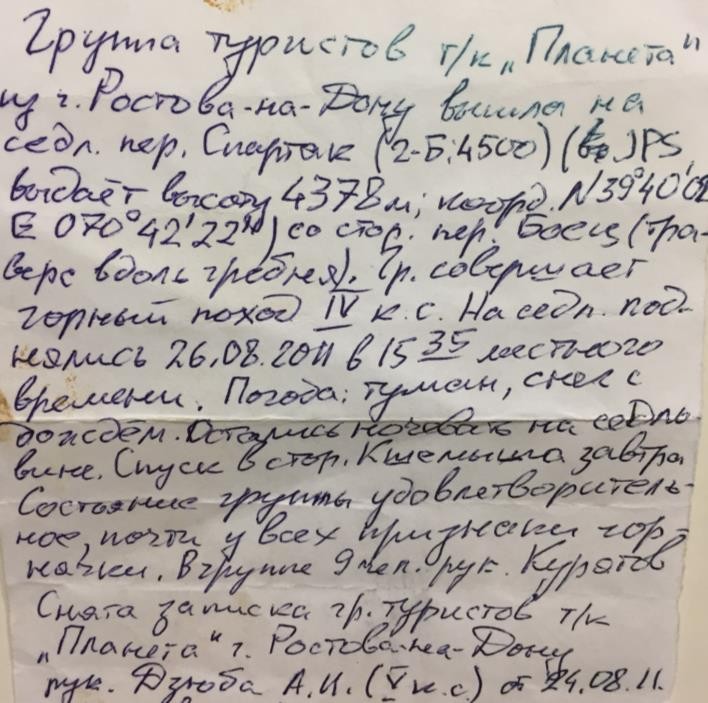 Группа туристов т/к „Планета"
из г. Ростова-на-Дону вышла на
седл. пер. Спартак (2-Б; 4500) (JPS
выдаёт высоту 4378м; коорд. N39°40'02
E 070°42'22") со стор. пер. Боец (тра-
верс вдоль гребня). Гр. совершает
горный поход IV к.с. На седл. под-
нялись 26.08.2011 в 15 35 местного
времени. Погода: туман, снег с
дождём. Остались ночевать на седло
вине. Спуск в стор. Кшемыша завтра
Состояние группы удовлетворитель-
ное, почти у всех признаки гор-
нячки. В группе 9 чел. рук. Куратов
Снята записка гр. туристов т/к
„Планета" г. Ростова-на-Дону
рук. Дзюба А.И. (V к.с) от 24.08.11.